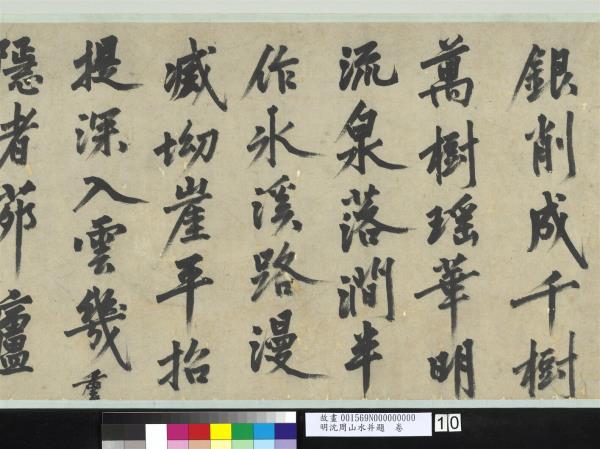 銀削成千樹
萬樹瑤華明
流泉落澗半
作氷溪路漫
滅坳崖平招
提深入雲幾重
隱者茆廬
故畫 001569N000000000
明沈周山水并題 卷
10